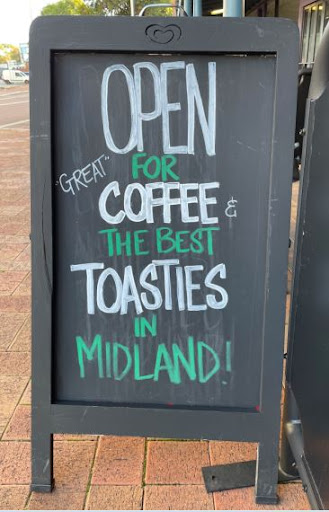 OPEN
"GREAT" FOR
COFFEE &
THE BEST
TOASTIES
IN
MIDLAND!